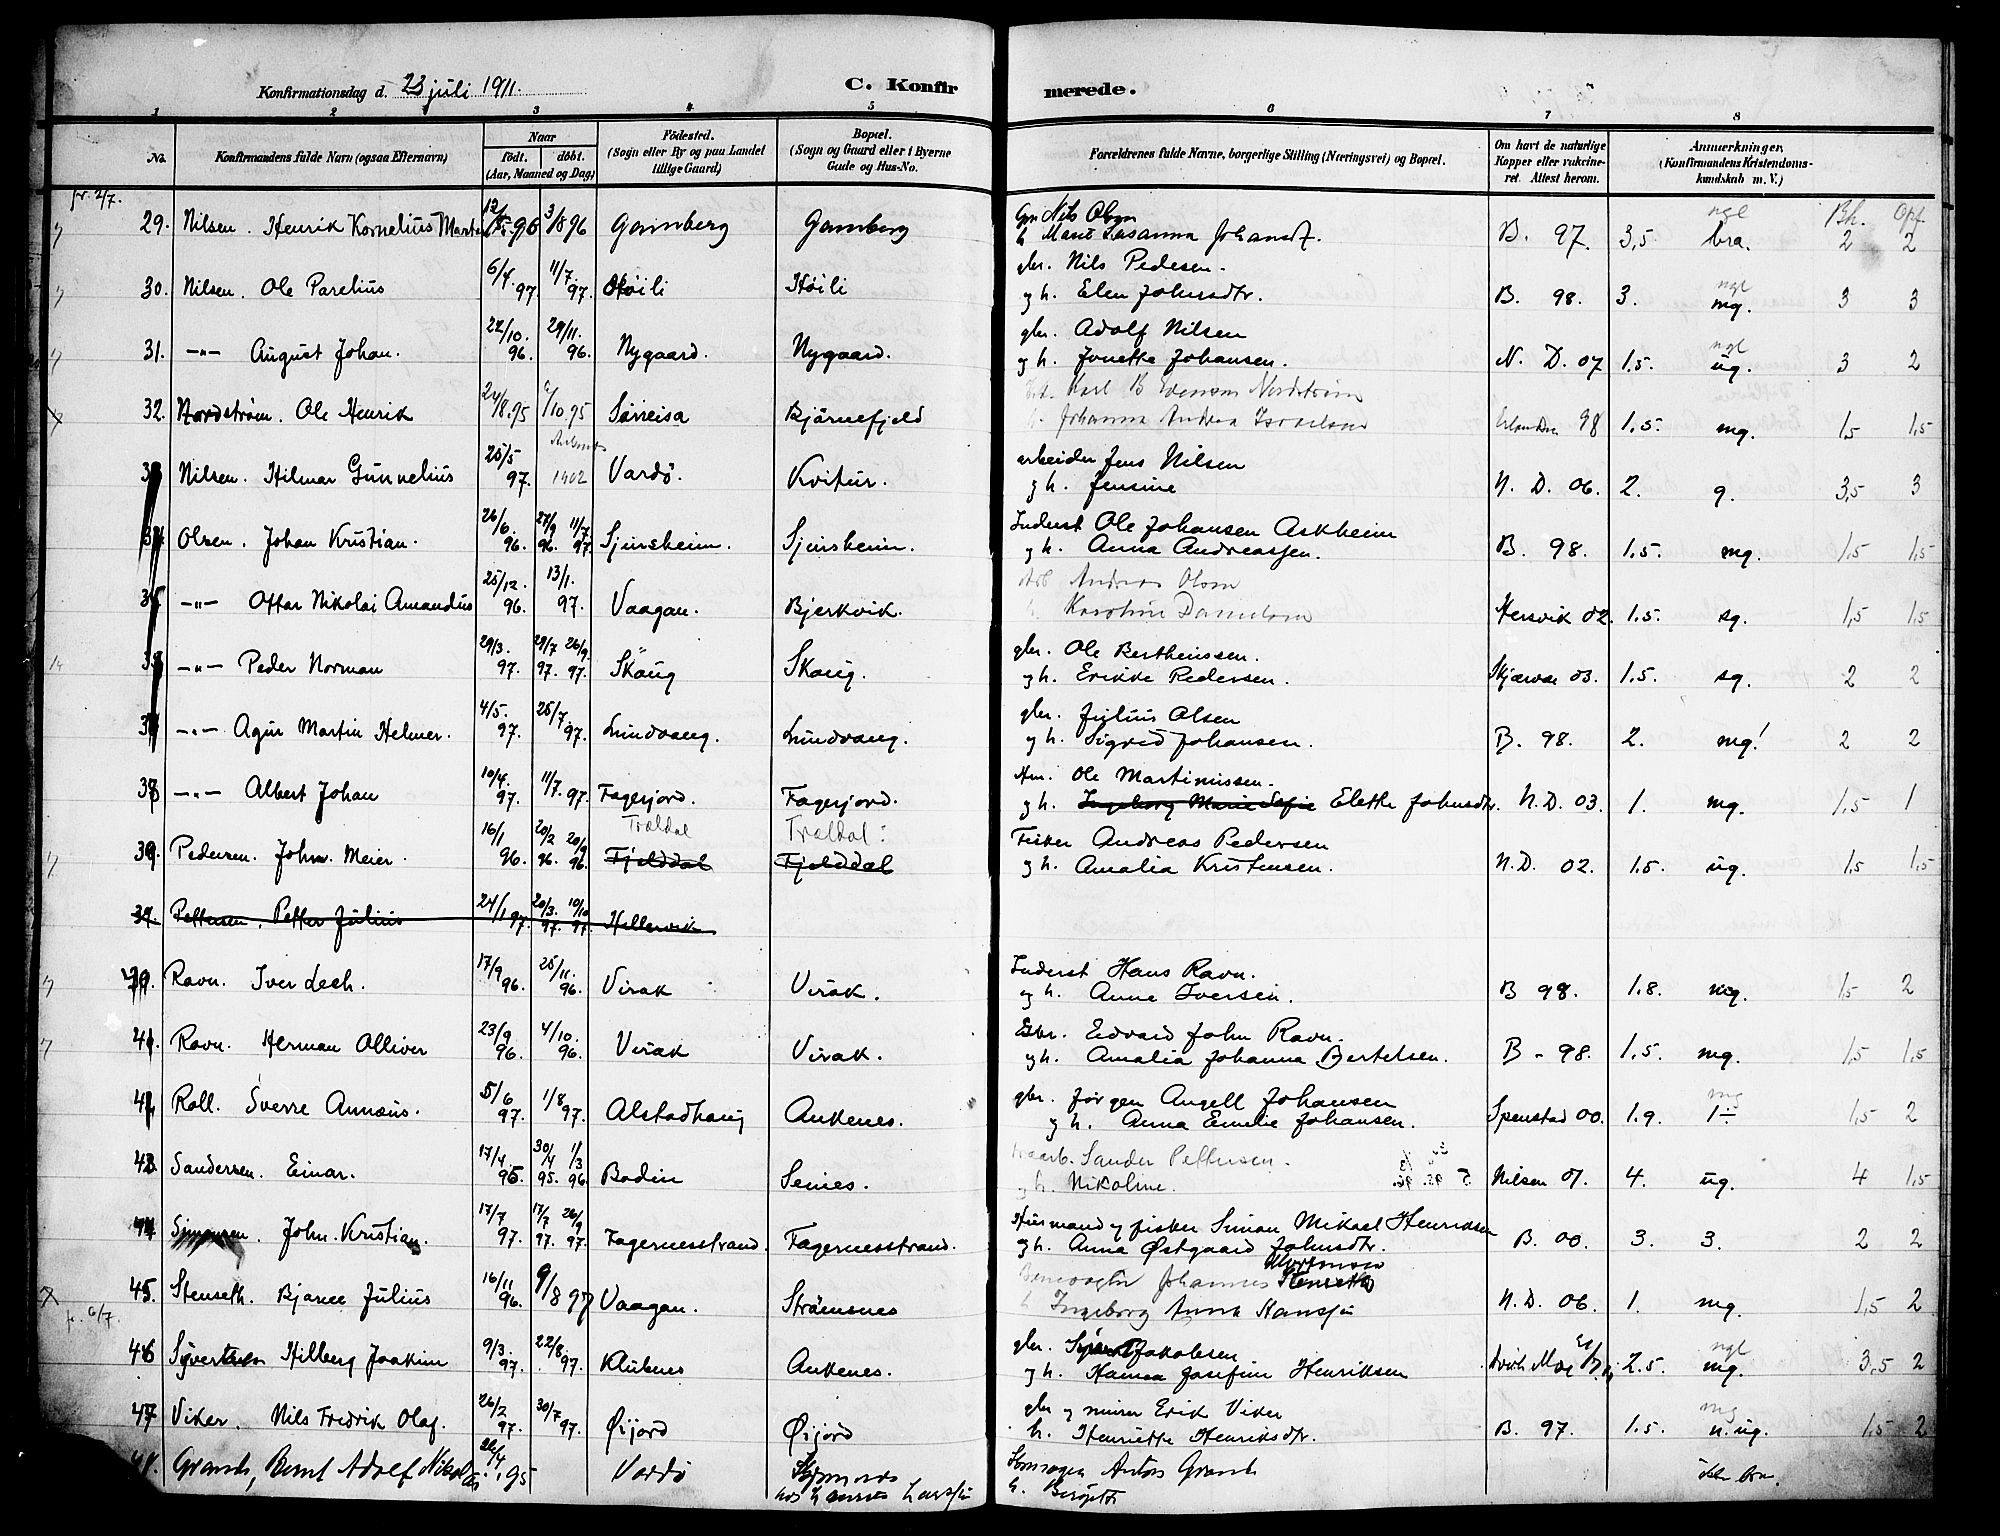 Konfirmationsdag d. 23 juli 1911. C. Konfirmerede.
1 2 3 4 5 6 7 8
No. Konfirmandens fulde Navn (ogsaa Efternavn) Naar født. døbt. (Aar, Maaned og Dag) Födested. (Sogn eller By og paa Landet tillige Gaard) Bopæl. (Sogn og Gaard eller i Byerne Gade og Hus-No. Forældrenes fulde Navne, borgerlige Stilling (Næringsvei) og Bopæl. Om havt de naturlige Kopper eller vakcineret. Attest herom. Anmærkninger, (Konfirmandens Kristendomskundskab m. V.)
fr. 2/7. Bh. Opf.
29. Nilsen. Henrik Kornelius 96 3/8 96 Gamberg Gamberg Nils Olsen B. 97. 3,5 ngl bra. 2 2
h. Susanna Johansd.
30. Nilsen. Ole Parelius 6/4 97. 11/7 97. Høili Høili gbr. Nils Pedersen. B. 98. 3. ngl mg. 3 3
og h. Elen Johnsdtr.
31. -"- August Johan. 22/10. 96. 29/11. 96. Nygaard. Nygaard. gbr. Adolf Nilsen N. D. 07 1.5. ngl ug. 3 2
og h. Jonette Johansen.
32. Nordstrøm. Ole Henrik 24/8.95 /10 95 Sørreisa Bjørnefjeld Karl B Nordstrøm 98 1.5. mg. 1,5 1,5
h. Johanna Andrea Israelsen
Nilsen. Hilmar Gunnelius 25/5 97. 1902 Vardø. Kvitur. arbeider Jens Nilsen N. D. 06. 2. g. 3,5 3
og h. Jensine
Olsen. Johan Kristian. 26/6. 96. 27/9 96. 11/7 97. Sjursheim. Sjursheim. Inderst Ole Johansen Askheim B. 98. 1.5. mg. 1,5 1,5
og h. Anna Andreassen.
-"- Ottar Nikolai Amandus 25/12. 96. 13/1. 97. Vaagan. Bjerkvik. Arb Andreas Olsen Hersvik 02. 1.5. sg. 1,5 1,5
-"- Peder Norman 29/3. 97. 29/7 97. 26/9. 97. Skoug Skoug. gbr. Ole Berthinssen. Skjærvæ 03. 1.5. sg. 2 2
og h. Erikke Pedersen.
-"- Agur Martin Helmer. 4/5. 97. 25/7. 97. Lundvang. Lundvang. gbr. Julius Olsen B. 98. 2. mg! 2 2
og h. Sigrid Johansen.
38 -"- Albert Johan 10/4. 97. 11/7. 97. Fagerjord. Fagerjord. Hm. Ole Martinissen. N.D. 03. 1. mg. 1,5 1
og h. Ingeborg Marie Sofie Elette Johnsdtr.
39. Pedersen. John. Meier. 16/1 96. 20/2 96. 20/9 96. Traldal Fjelddal Traldal: Fjelddal Fisker Andreas Pedersen N.D. 02. 1.5. ug. 1,5 1,5
og h. Amalia Kristensen.
39. Pettersen. Petter Julius 24/1 97. 20/3. 97. 10/10 97. Hillervik
Ravn. Iver Lech. 17/9 96. 25/11. 96. Virak Virak. Inderst Hans Ravn. B 98. 1.8. mg. 1,5 2
og h. Anne Iversen.
41. Ravn. Herman Olliver 23/9 96. 4/10. 96. Virak Virak. Gbr. Edvard John Ravn. B - 98. 1.5. mg. 1,5 1,5
og h. Amalia Johanna Bertelsen.
Roll. Sverre Annæus. 5/6 97. 1/8 97. Alstadhaug Ankenes. gbr. Jørgen Angell Johansen Spenstad 00. 1.9. mg 1÷ 1,5 2
og h. Anna Emelie Johansen.
43. Sandersen. Einar. 17/4. 95 30/4 95. 1/3 96 Bodin Seines. Sander Pettersen. Nilsen 01. 4. ug. 4 1,5
og h. Nikoline.
44 Simonsen. John. Kristian. 17/7 97. 17/7 97. 26/9 97. Fagernesstrand. Fagernesstrand. Husmand og fisker Simon Mikael Henriksen B. 00. 3. 3. 2 2
og h. Anna Østgaard Johnsdtr.
45. Stenseth. Bjarne Julius 16/11 96. 9/8 97 Vaagan. Strømsnes Banevogter Johannes Mortensen Stenseth N. D. 06. 1. mg. 1,5 2
fr. 6/7. h. Ingeborg Anna Hanssen
46 Syvertsen Hilberg Joakim 9/3. 97. 22/8. 97. Klubnes Ankenes. gbr. Jakobsen 2.5. ngl mg. 3,5 2
og h. Hanna Josefine Henriksen
47 Viker. Nils Fredrik Olaf. 26/2 97. 30/7 97. Øijord Øijord gbr og murer Erik Viker B. 97. 1.5. mg n.ug. 1,5 2
h. Henriette Henriksdtr.
Grande, Bernt Adolf Nikolai 26/4 95 Vardø Anton Grande ikke bra.
h.